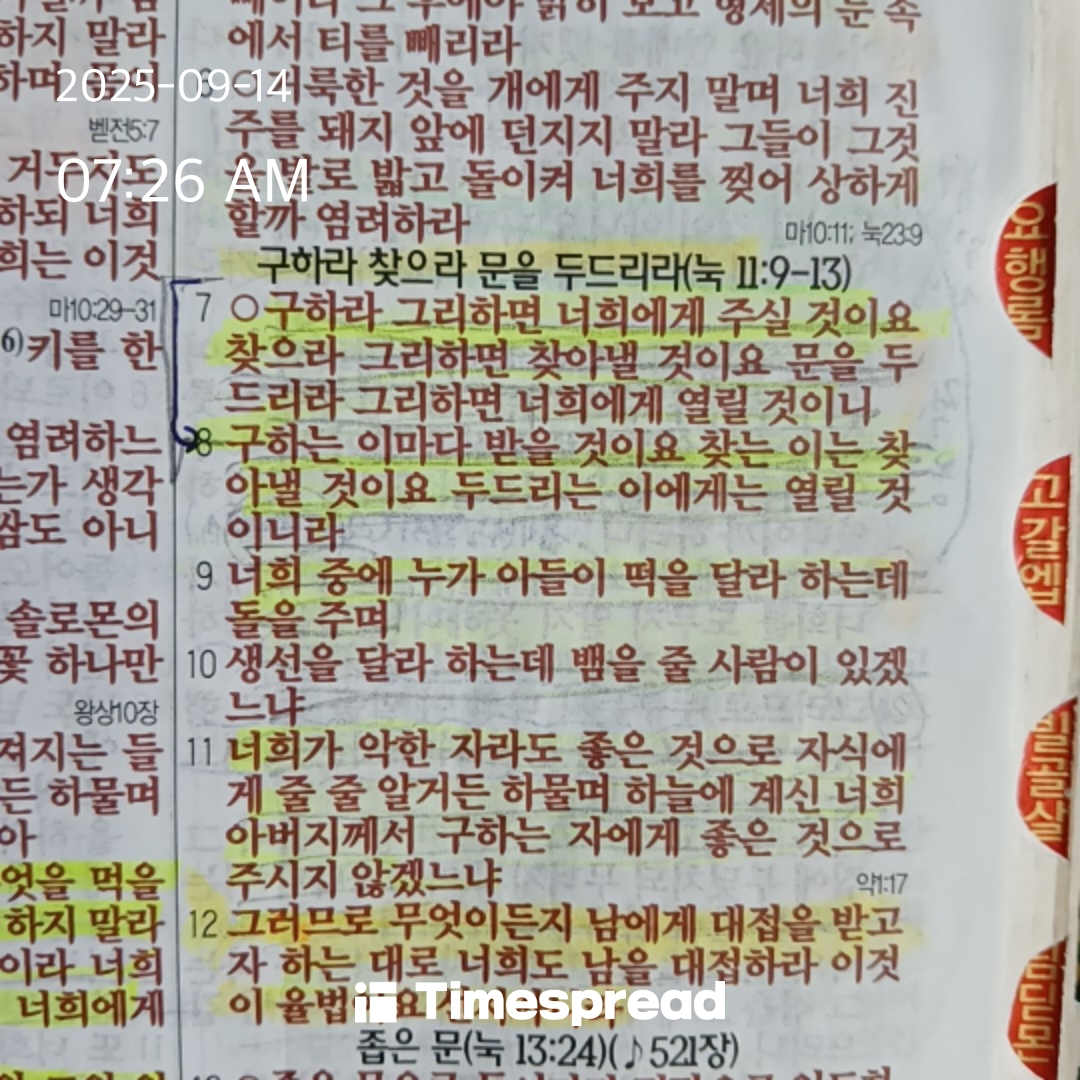 하지 말라
하며
벧전5:7
하되 너희
희는 이것
마10:29-31
6)키를 한
염려하느
는가 생각
쌈도 아니
솔로몬의
꽃 하나만
왕상10장
져지는 들
든 하물며
아
엇을 먹을
하지 말라
이라 너희
너희에게
2025-09-14
07:26 AM
에서 티를 빼리라
것을 개에게 주지 말며 너희 진
주를 돼지 앞에 던지지 말라 그들이 그것
밟고 돌이켜 너희를 찢어 상하게
할까 염려하라
마10:11; 눅23:9
구하라 찾으라 문을 두드리라(눅 11:9-13)
7 ○구하라 그리하면 너희에게 주실 것이요
찾으라 그리하면 찾아낼 것이요 문을 두
드리라 그리하면 너희에게 열릴 것이니
8 구하는 이마다 받을 것이요 찾는 이는 찾
아낼 것이요 두드리는 이에게는 열릴 것
이니라
9 너희 중에 누가 아들이 떡을 달라 하는데
돌을 주며
10 생선을 달라 하는데 뱀을 줄 사람이 있겠
느냐
11 너희가 악한 자라도 좋은 것으로 자식에
게 줄 줄 알거든 하물며 하늘에 계신 너희
아버지께서 구하는 자에게 좋은 것으로
주시지 않겠느냐
약1:17
12 그러므로 무엇이든지 남에게 대접을 받고
자 하는 대로 너희도 남을 대접하라 이것
이
Timespread
좁은 문(눅 13:24)(♪521장)
요 행 롬
고 갈 엡